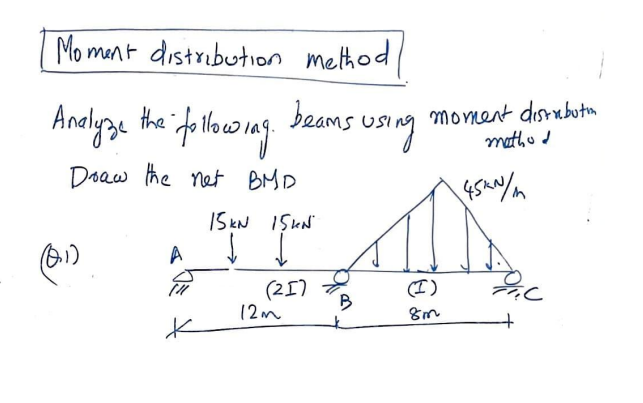 Moment distribution method
Analyze the following beams using moment distributn
method
Draw the net BMD
45kN/m
15kN 15kN
Q.1)
A
(2I)
B
(I)
C
12m
8m